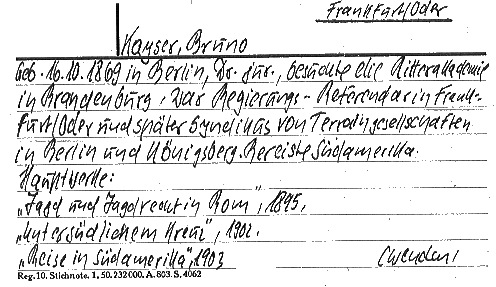 Frankfurt/Oder
Kayser, Bruno
geb. 16.10.1869 in Berlin, Dr. jur., besuchte die Ritterakademie
in Brandenburg, war Regierungs-Referendar in Frank-
furt/Oder und später Syndikus von Terraingesellschaften
in Berlin und Königsberg. Bereiste Südamerika.
Hauptwerke:
„Jagd und Jagdrecht in Rom", 1895,
„Unter südlichem Kreuz", 1902.
„Reise in Südamerika", 1903
Reg.10. Stichnote. 1, 50. 232 000. A. 803. S. 4062